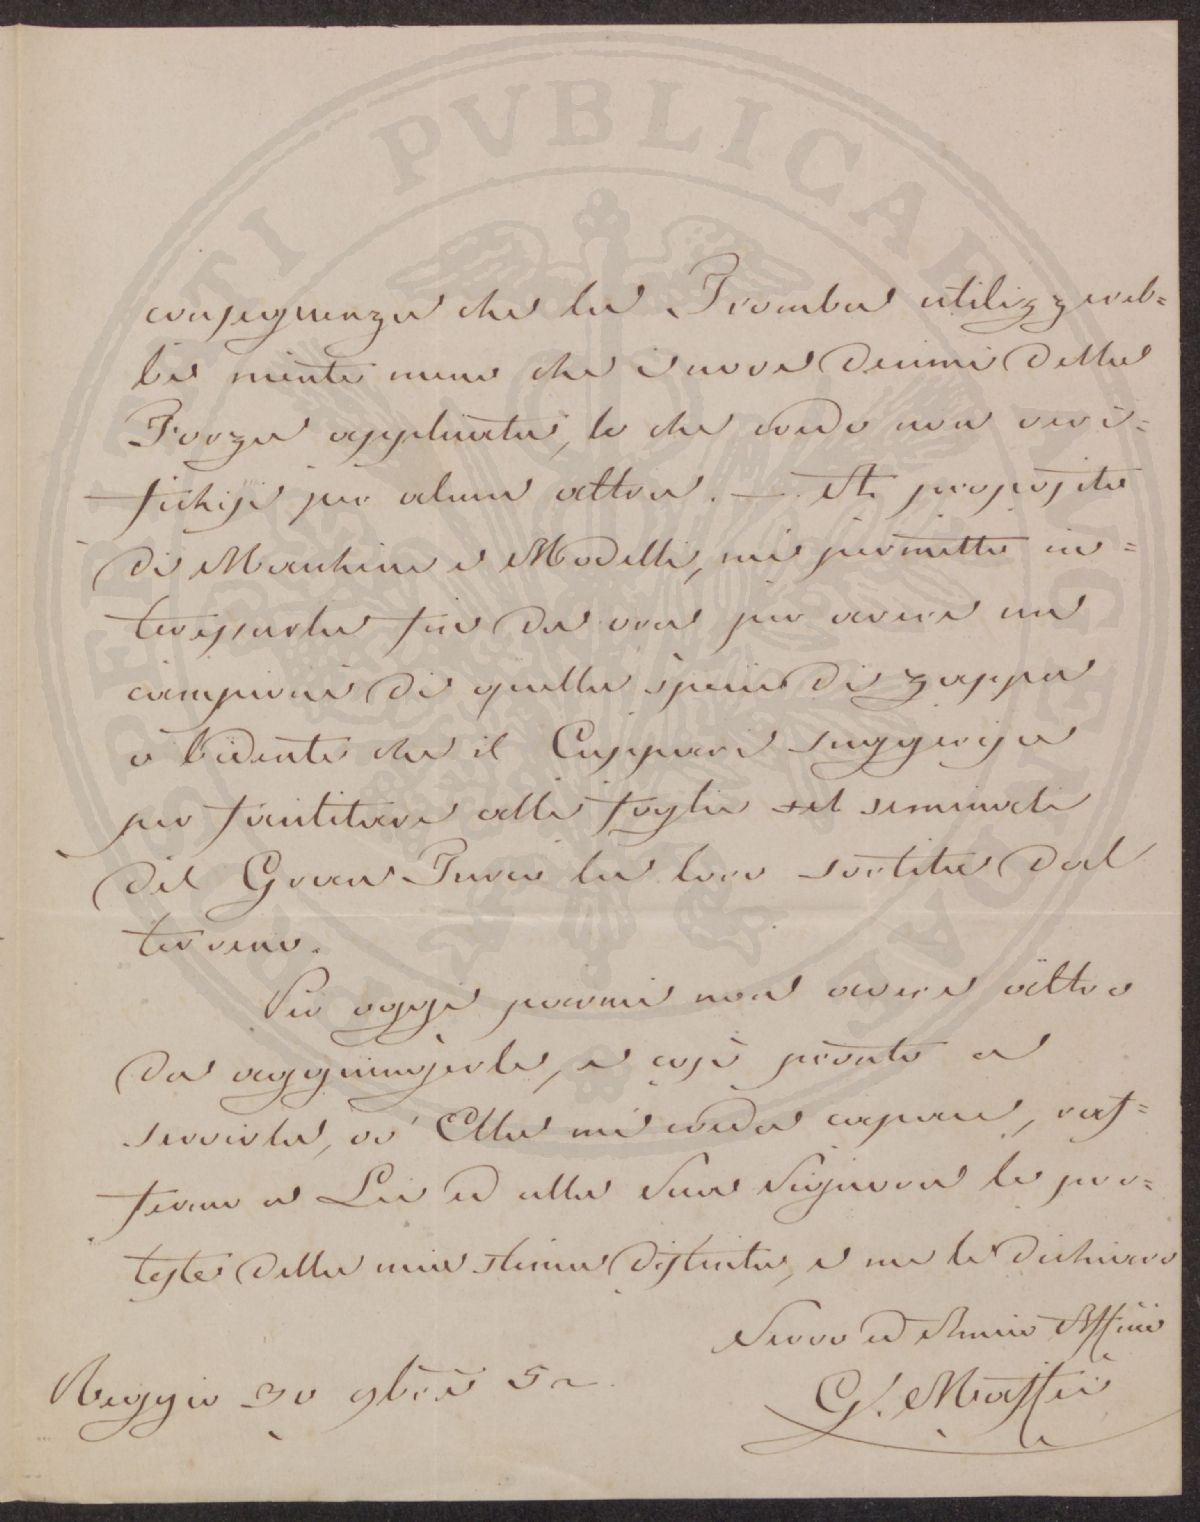 conseguenza che la Tromba utilizzereb=
be niente meno che i nove decimi della
Forza applicata, lo che credo non veri=
fichisi per alcun altra. — A proposito
di Macchine e Modelli, mi permetto in=
teressarla fin da ora per avere un
campione di quella specie di zappa
o bidente che il Cuppari suggerisce
per facilitare alle foglie sel seminate
del Gran Turco la loro sortita dal
terreno.
Per oggi parmi non avere altro
da aggiungerle, e così pronto a
servirla, ov' Ella mi creda capace, raf=
fermo a Lei ed alla Sua Signora le pro=
teste della mia stima distinta, e me le dichiaro
Servo ed Amico Affmo
G. Maffei
Reggio 30 9bre 52
PVBLICAE